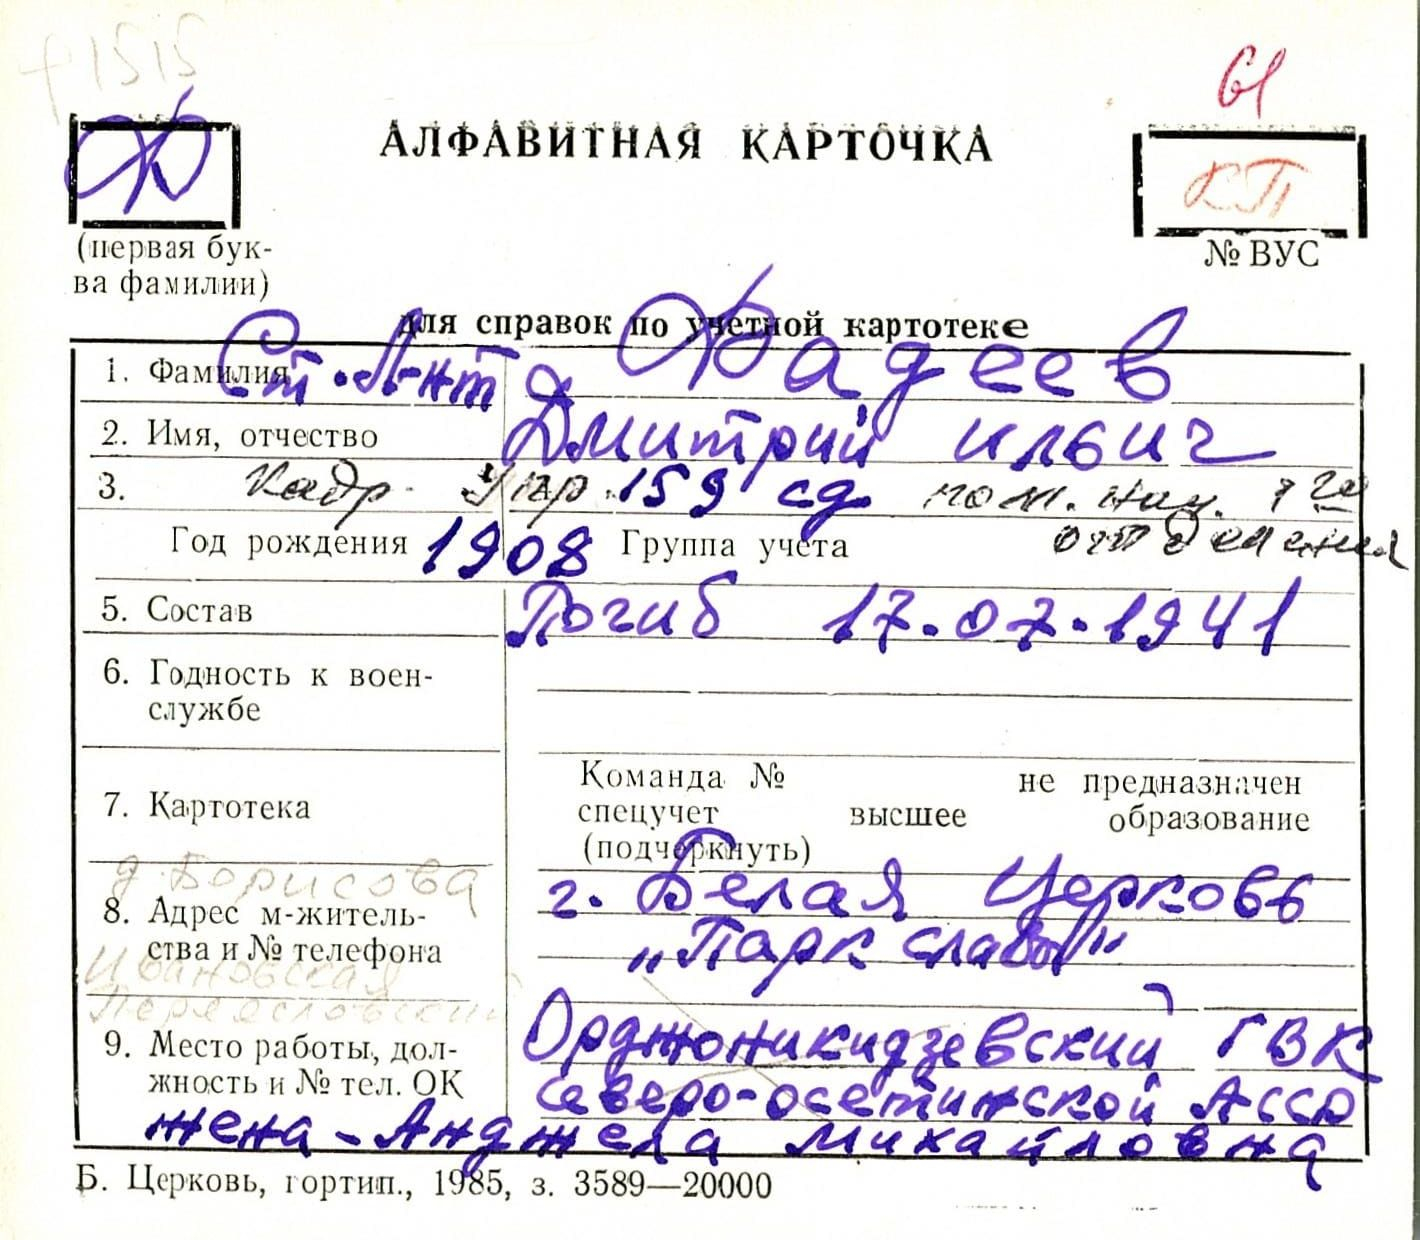 ф 1515
61
Ф
АЛФАВИТНАЯ КАРТОЧКА
КП
(первая бук-
ва фамилии)
№ ВУС
для справок по учетной картотеке
1. Фамилия Ст. Л-нт Фадеев
2. Имя, отчество Дмитрий Ильич
3. Кадр. Упр. 159 сд пом. нач. 1 го
отделения
Год рождения 1908 Группа учета
5. Состав Погиб 17.07.1941
6. Годность к воен-
службе
7. Картотека
Команда № не предназначен
спецучет высшее образование
(подчеркнуть)
д. Борисова
8. Адрес м-житель-
ства и № телефона
г. Белая Церковь
„Парк славы"
Ивановская
Переясловский
9. Место работы, дол-
жность и № тел. ОК
Орджоникидзевский ГВК
Северо-осетинской АССР
жена - Анджела Михайловна
Б. Церковь, гортип., 1985, з. 3589—20000